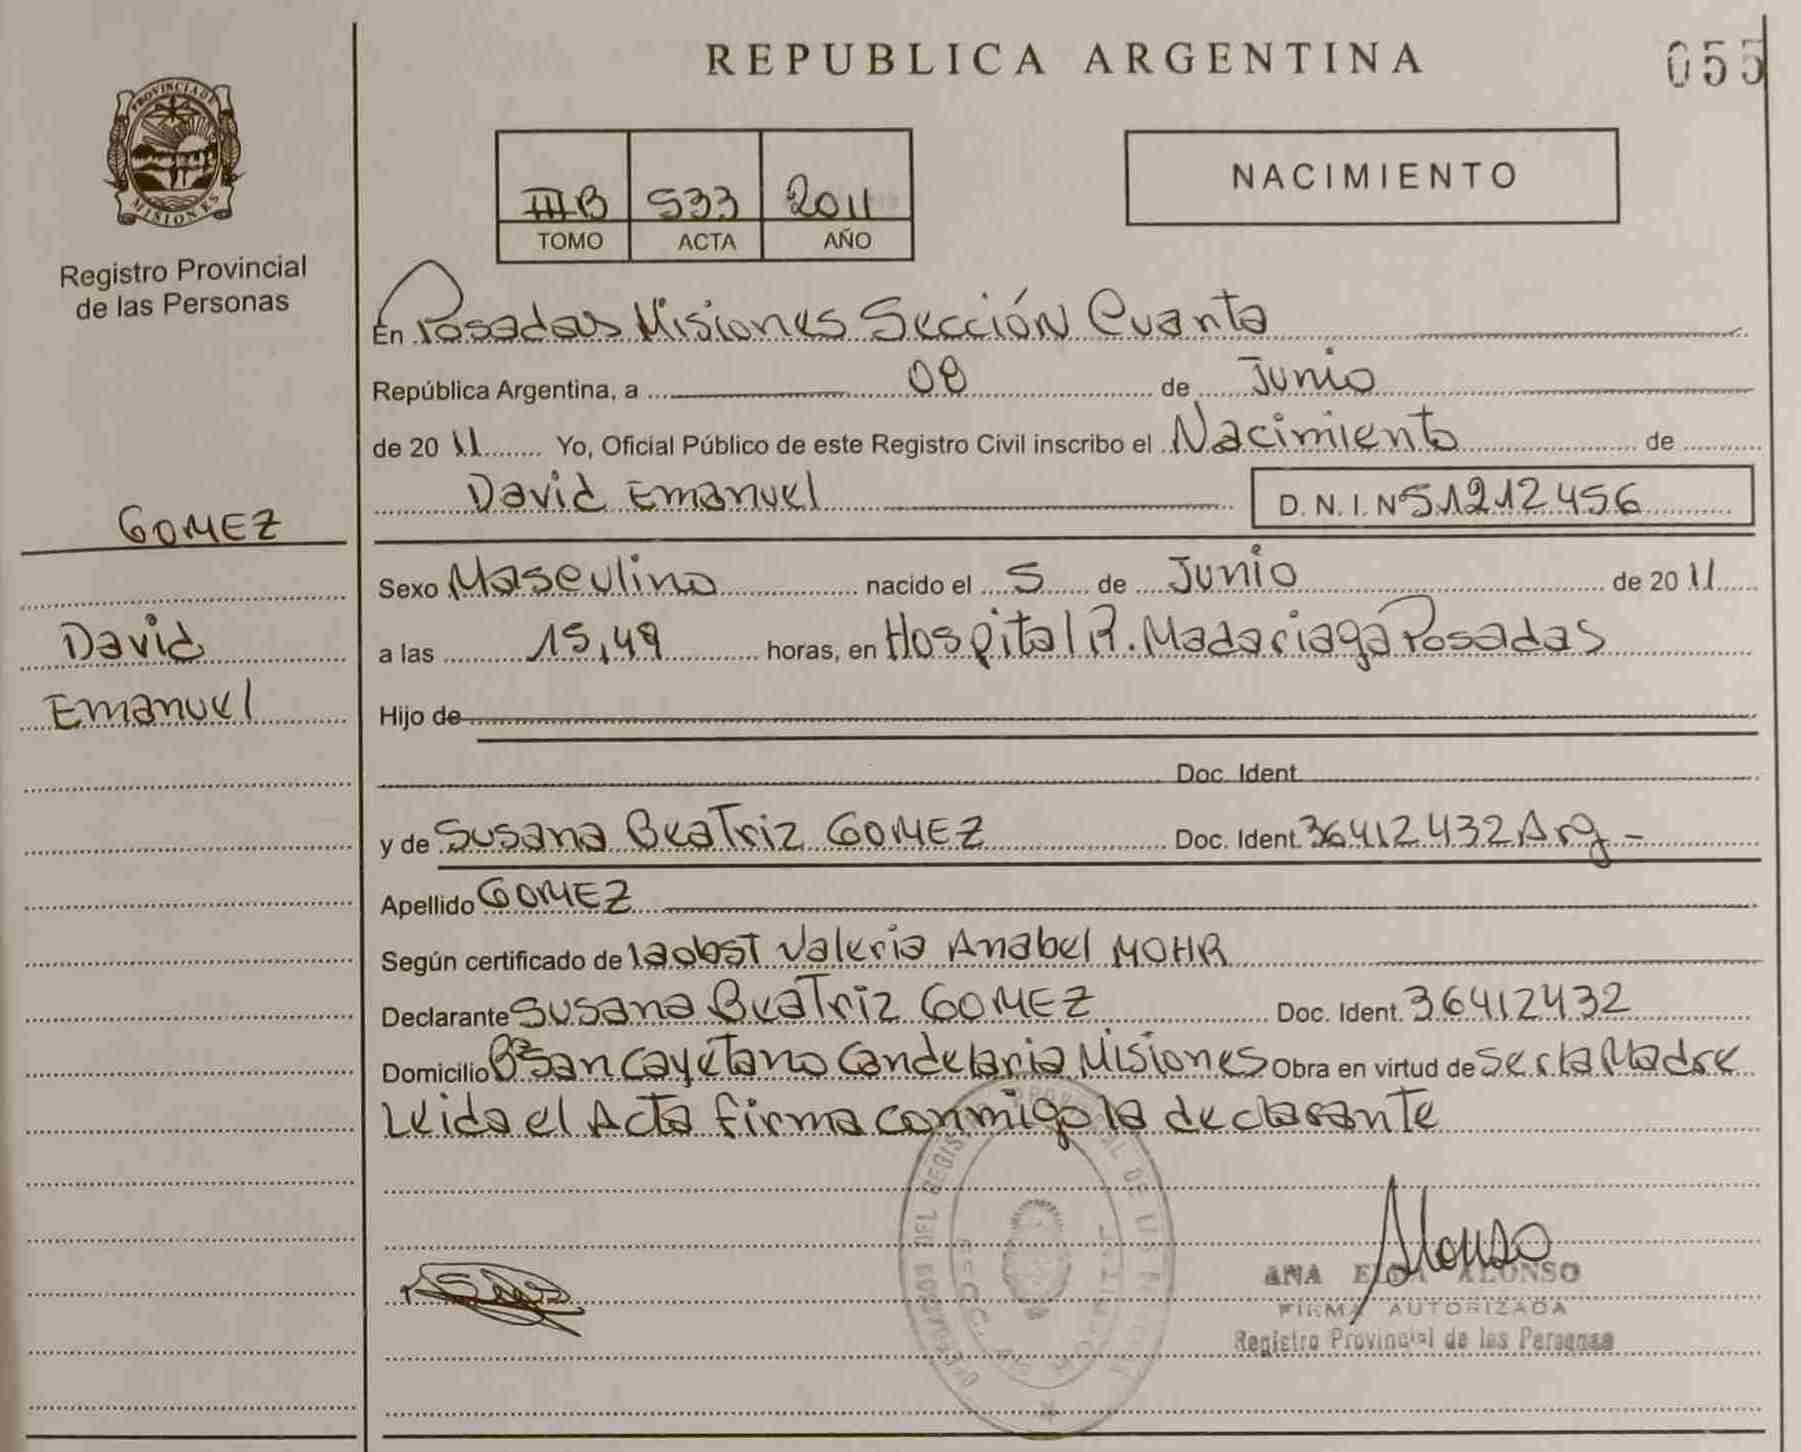 REPUBLICA ARGENTINA
055
PROVINCIA DE
MISIONES
Registro Provincial
de las Personas
IIIB 533 2011
TOMO ACTA AÑO
NACIMIENTO
En Posadas Misiones Sección Cuarta
República Argentina, a 08 de Junio
de 20 11 Yo, Oficial Público de este Registro Civil inscribo el Nacimiento de
David Emanuel D. N. I. Nº 51212456
GOMEZ
David
Emanuel
Sexo Masculino nacido el 5 de Junio de 20 11
a las 15,49 horas, en Hospital R. Madariaga Posadas
Hijo de
Doc. Ident
y de Susana Beatriz GOMEZ Doc. Ident. 36412432 Arg -
Apellido GOMEZ
Según certificado de la obst Valeria Anabel MOHR
Declarante Susana Beatriz GOMEZ Doc. Ident. 36412432
Domicilio Bº San Cayetano Candelaria Misiones Obra en virtud de Ser la Madre
Leida el Acta firma conmigo la declarante
Alonso
ANA ALONSO
FIRMA AUTORIZADA
Registro Provincial de las Personas